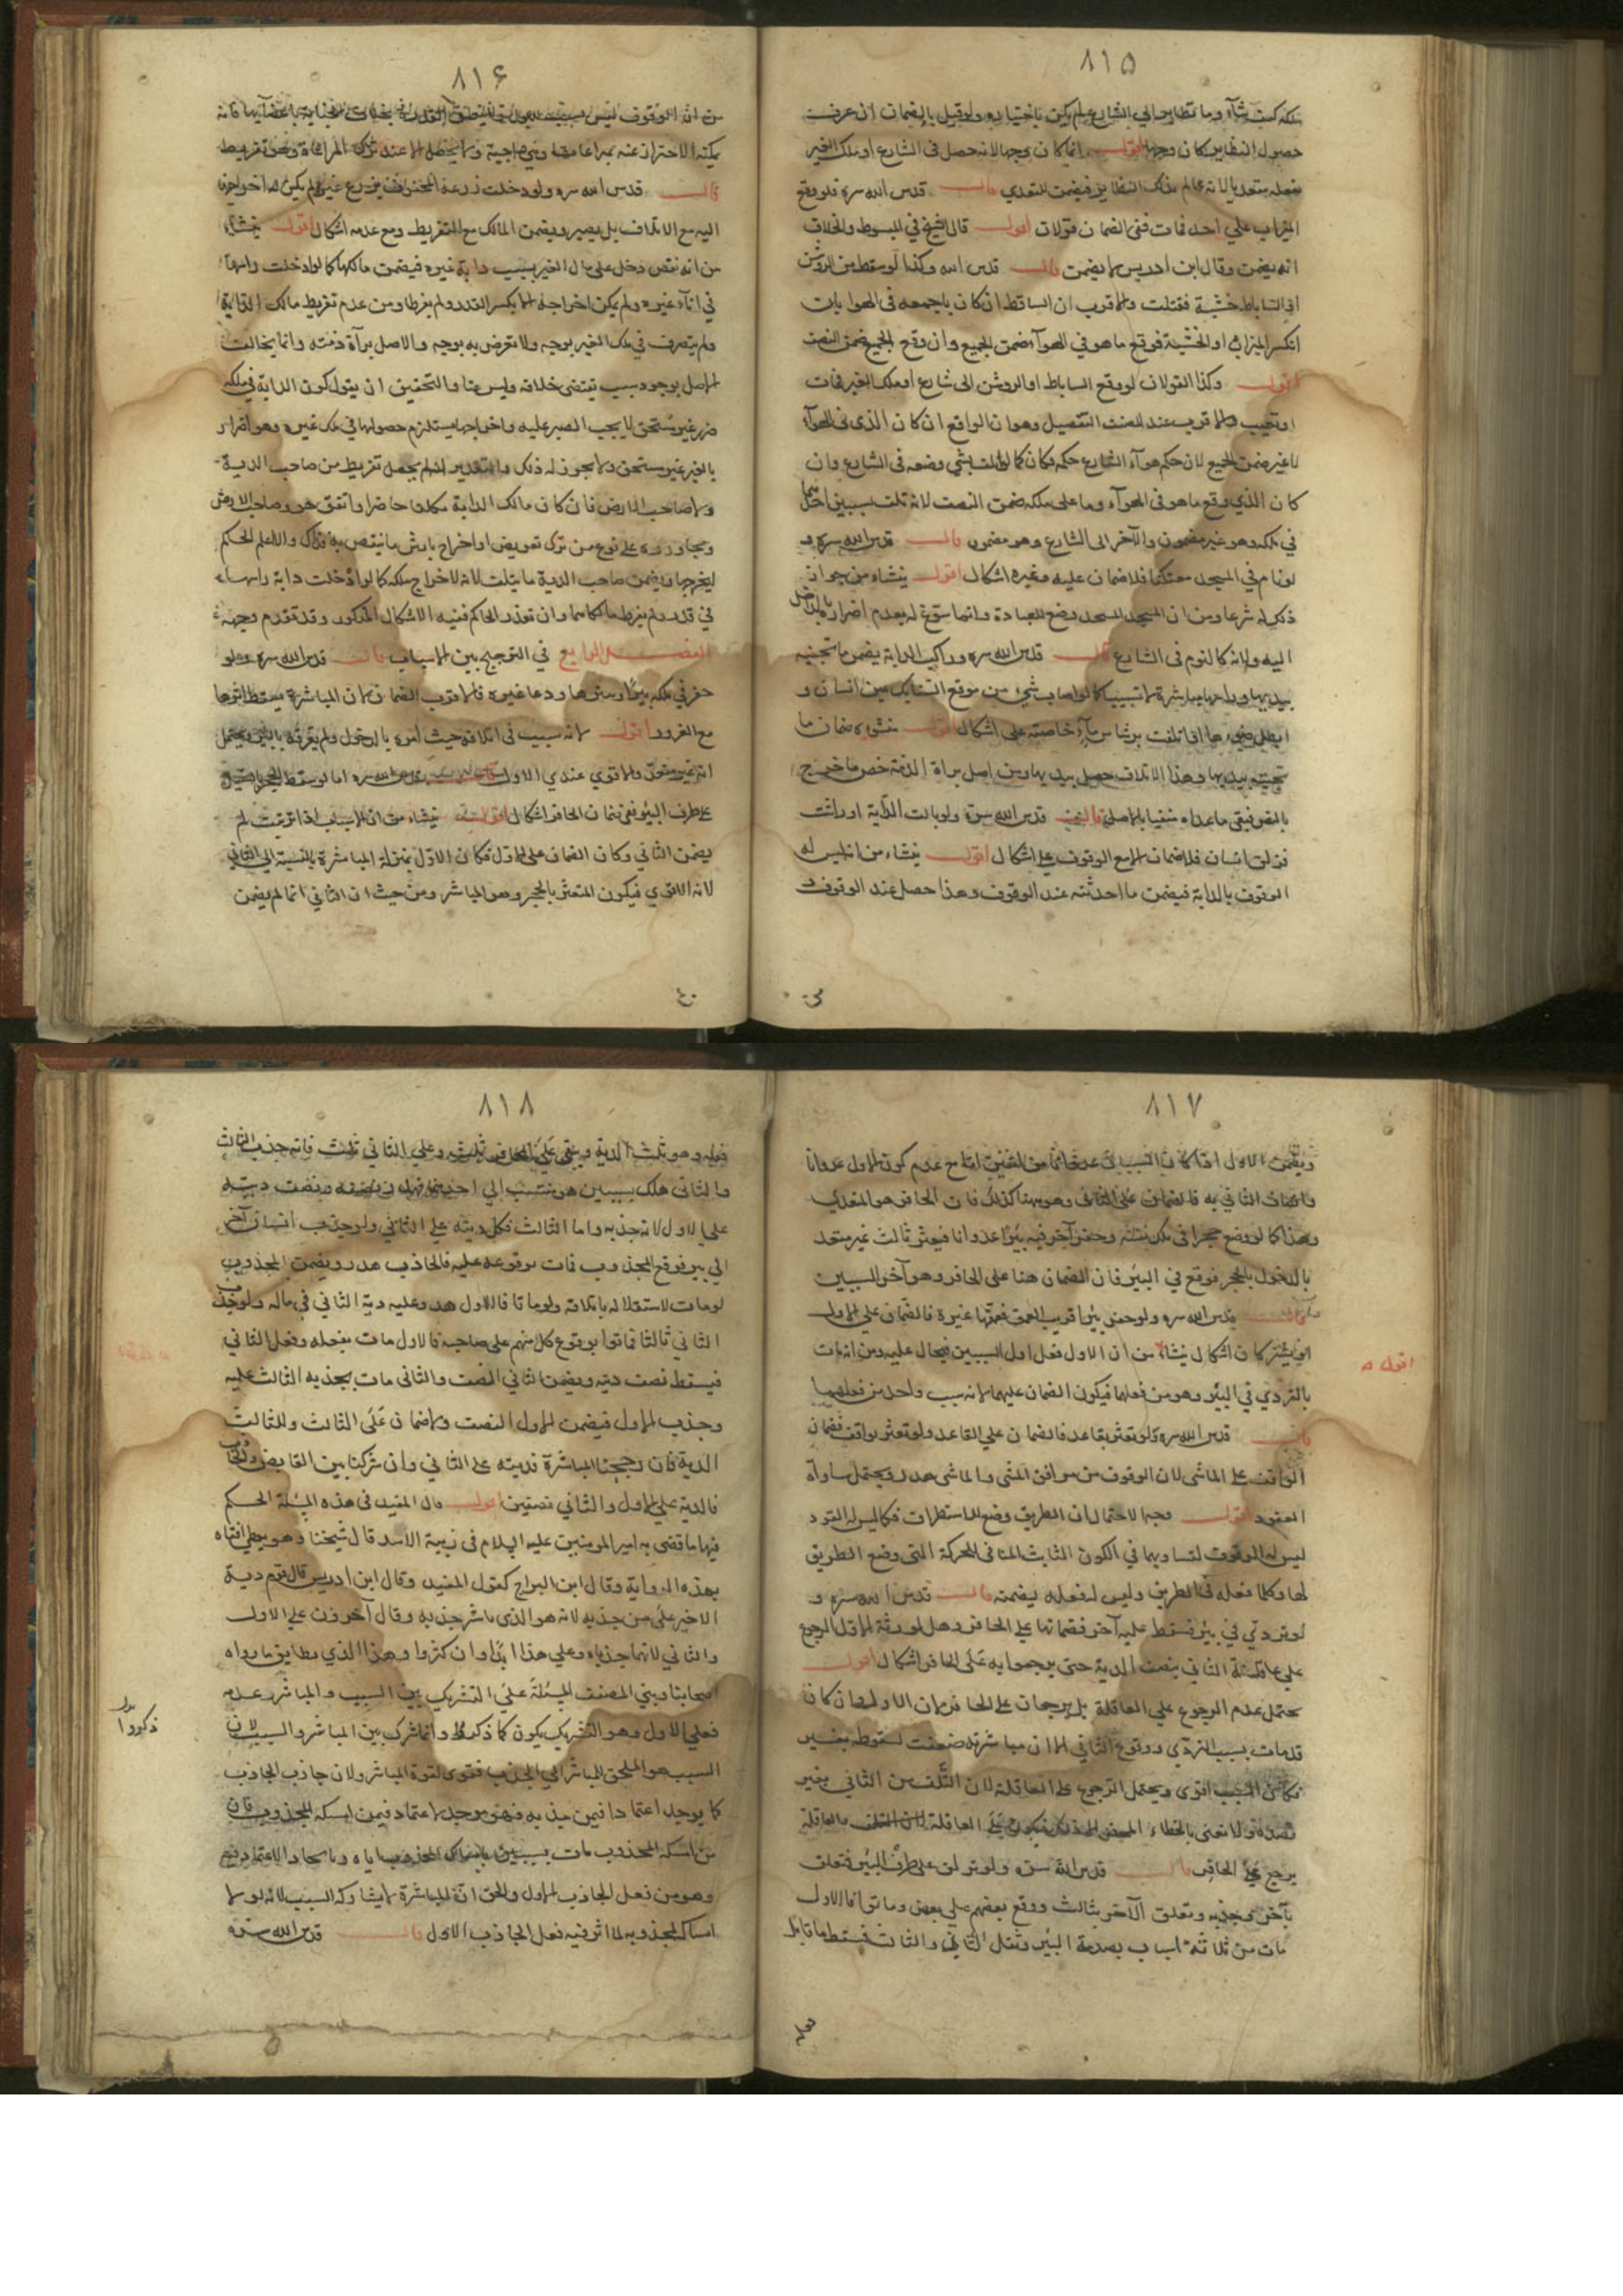 ٨١٥
ملكه كيف شاء وما تطاير الى الشارع لم يكن باختياره ولو قيل بالضمان ان عرف
حصول التطاير كان وجها اقول انما كان وجها لانه حصل فى الشارع او ملك الغير
بفعله متعديا لانه عالم بذلك التطاير فيضمن المتعدي قال قدس الله سره فلو وقع
الميزاب علي احد فمات ففى الضمان قولان اقول قال الشيخ في المبسوط والخلاف
انه يضمن وقال ابن ادريس لا يضمن قال قدس الله وكذا لو سقط من الروشن
او الساباط خشبة فقتلت والاقرب ان الساقط ان كان باجمعه فى الهوا بان
انكسر الميزاب او الخشبة فوقع ما هو في الهوآء ضمن الجميع وان وقع الجميع ضمن النصف
اقول وكذا القولان لو وقع الساباط او الروشن الى شارع او ملك الغير فمات
والاقرب عند المصنف التفصيل وهو ان الواقع ان كان الذى فى الهوآء
لا غير ضمن الجميع لان حكم هوآء الشارع حكمه فكان كما لو وضعه فى الشارع وان
كان الذي وقع ما هو فى الهوآء وما على ملكه ضمن النصف لانه تلف بسببين احدهما
في ملكه وهو غير مضمون والآخر الى الشارع وهو مضمون قال قدس الله سره و
لو نام في المسجد معتكفا فلا ضمان عليه وغيره اشكال اقول ينشاء من جواز
ذلك له شرعا ومن ان المسجد وضع للعبادة وانما سوغ له بعدم اضراره بالداخل
اليه ولانه كالنوم فى الشارع قال قدس الله سره وراكب الدابة يضمن ما تجنيه
بيديها وراسها مباشرة لا تسبيبا كما لو اصاب شيء من موقع السنابك عين انسان و
ابطل ضوءها اذا تلفت برشاش ماء خاصته على اشكال اقول منشوه ضمان ما
تجنيه بيديها وهذا الاتلاف حصل بيديها ومن اصل براة الذمة خص ما خرج
بالنص فبقى ما عداه منفيا بالاصل قال قدس الله سره ولو بالت الدابة او راثت
فزلق انسان فلا ضمان الا مع الوقوف على اشكال اقول ينشاء من انه ليس له
الوقوف بالدابة فيضمن ما احدثته عند الوقوف وهذا حصل عند الوقوف و
٨١۶
من ان الوقوف ليس بسبب
يمكنه الاحتراز عنه بمراعاتها وهي واجبة ولا يحصل الا عند ترك المراعاة وهو تفريط
قال قدس الله سره ولو دخلت زرعه المحفوف بزرع غيره لم يكن له اخراجها
اليه مع الاتلاف بل يصبر ويضمن المالك مع التفريط ومع عدمه اشكال اقول ينشاء
من انه نقص دخل على مال الغير بسبب دابة غيره فيضمن مالكها كما لو ادخلت راسها
في اناء غيره ولم يمكن اخراجه الا بكسر القدر ولم يفرطا ومن عدم تفريط مالك الدابة
ولم يتصرف في ملك الغير بوجه ولا تعرض به بوجه والاصل برآة ذمته وانما يخالف
الاصل بوجود سبب يقتضى خلافه وليس هنا والتحقيق ان يقول كون الدابة في ملكه
ضرر غير مستحق لا يجب الصبر عليه واخراجها يستلزم حصولها في ملك غيره وهو اضرار
بالغير غير مستحق ولا يجوز له ذلك والتقدير انه لم يحصل تفريط من صاحب الدابة
ولا صاحب الارض فان كان مالك الدابة مكلفا حاضرا واتفق هو وصاحب الارض
ومجاوره على نوع من ترك تعويض او اخراج بارش ما ينقص به فذاك والا اعلم الحاكم
ليخرجها ويضمن صاحب الدابة ما يتلف لانه لاخراج ملكه كما لو ادخلت دابة راسها
في قدر ولم يفرط مالكاهما وان تعذر الحاكم ففيه الاشكال المذكور وقد تقدم وجهه
الفصل الرابع في الترجيح بين الاسباب قال قدس الله سره ولو
حفر في ملكه بئرا وسترها ودعا غيره فالاقرب الضمان لان المباشرة يسقط اثرها
مع الغرور اقول لانه سبب فى اتلافه حيث امره بالدخول ولم يعرفه بالبئر ويحتمل
انه غير متعد والاقوي عندي الاول قال قدس الله سره اما لو سقط الحجر
على طرف البئر ففى ضمان الحافر اشكال اقول ينشاء من ان الاسباب اذا ترتبت لم
يضمن الثاني وكان الضمان على الاول فكان الاول بمنزلة المباشرة بالنسبة الى الثاني
لانه الاقوي فيكون المتعثر بالحجر وهو المباشر ومن حيث ان الثاني انما لم يضمن
٨١٧
ويضمن الاول اذا كان مع عدم كون الاول عدوانا
واتصاف الثاني به فالضمان على الثانى وهو هنا كذلك فان الحافر هو المتعدي
وهذا كما لو وضع حجرا فى ملك نفسه وحفر آخر فيه بئرا عدوانا فيعثر ثالث غير متعد
بالدخول بالحجر فوقع في البئر فان الضمان هنا على الحافر وهو آخر السببين
قال قدس الله سره ولو حفر بئرا قريب العمق فعمقها غيره فالضمان علي الاول
او يشتركان اشكال ينشاء من ان الاول فعل اول السببين فيحال عليه ومن انه مات
اقول ص
بالتردي في البئر وهو من فعلهما فيكون الضمان عليهما لانه سبب واحد من فعلهما
قال قدس الله سره ولو تعثر بقاعد فالضمان علي القاعد ولو تعثر بواقف فضمان
الواقف على الماشى لان الوقوف من مرافق المشى والماشى هدر ويحتمل مساواة
القعود اقول وجه الاحتمال ان الطريق وضع للاستطراق فكما ليس له القعود
ليس له الوقوف لتساويهما في الكون الثابت المنافى للحركة التى وضع الطريق
لها وكلما فعله فى الطريق وليس له فعله يضمنه قال قدس الله سره و
لو تردي في بئر فسقط عليه آخر فضمانهما على الحافر وهل لورثة الاول الرجوع
على عاقلة الثاني بنصف الدية حتى يرجعوا به على الحافر اشكال اقول
يحتمل عدم الرجوع علي العاقلة بل يرجعان على الحافر لان الاول وان كان
قد مات بسبب التردي ووقوع الثاني الا ان مباشرته ضعفت لسقوطه بغير
فكان السبب اقوى ويحتمل الرجوع على العاقلة لان التلف من الثاني بغير
قصده ولا نعنى بالخطاء العاقلة
يرجع على الحافر قال قدس الله سره ولو تزلق على طرف البئر فتعلق
بآخر وجذبه وتعلق الآخر بثالث ووقع بعضهم على بعض وماتوا فالاول
مات من ثلاثة اسباب بصدمة البئر وثقل الثانى والثالث فيسقط ما قابل
٨١٨
فعله وهو ثلث الدية ويبقى على الحافر ثلث وعلى الثاني ثلث فانه جذب الثالث
والثانى هلك بسببين هو منتسب الى احدهما ونصف ديته
على الاول لانه جذبه واما الثالث فكل ديته على الثاني ولو جذب انسان آخر
الى بير فوقع المجذوب فمات بوقوعه عليه فالجاذب هدر ويضمن المجذوب
لو مات لاستقلاله باتلافه ولو ماتا فالاول هدر وعليه دية الثاني في ماله ولو جذب
الثاني ثالثا فماتوا بوقوع كل منهم على صاحبه فالاول مات بفعله وفعل الثاني
فيسقط نصف ديته ويضمن الثاني النصف والثانى مات بجذبه الثالث عليه
وجذب الاول فيضمن الاول النصف ولا ضمان على الثالث وللثالث
الدية فان رجحنا المباشرة فديته على الثاني وان شركنا بين القابض والجاذب
فالدية على الاول والثاني نصفين اقول قال المفيد فى هذه المسئلة الحكم
فيها ما قضى به امير المومنين عليه السلام فى زبية الاسد قال شيخنا وهو يعطى افتاه
بهذه الرواية وقال ابن البراج كقول المفيد وقال ابن ادريس دية
الاخير على من جذبه لانه هو الذى باشر جذبه وقال آخرون على الاول
والثاني لانهما جذباه وعلى هذا ابدا وان كثروا وهذا الذي يطابق ما رواه
اصحابنا وبنى المصنف المسئلة على التشريك بين السبب والمباشر وعدمه
فعلى الاول وهو التشريك يكون كما ذكر وانما شرك بين المباشر والسبب لان
ذكروا
السبب هو الملجئ للمباشر الى الجذب فقوى لقوة المباشر ولان جاذب الجاذب
كما يوجد اعتمادا فيمن جذبه فهو موجد لاعتماد فيمن امسكه المجذوب فان
من امسكه المجذوب مات بسببين امساك المجذوب اياه وايجاد الاعتماد فيه
وهو من فعل الجاذب الاول والحق ان المباشرة لا يشاركه السبب لانه لولا
امساك المجذوب له لما اثر فيه فعل الجاذب الاول قال قدس الله سره